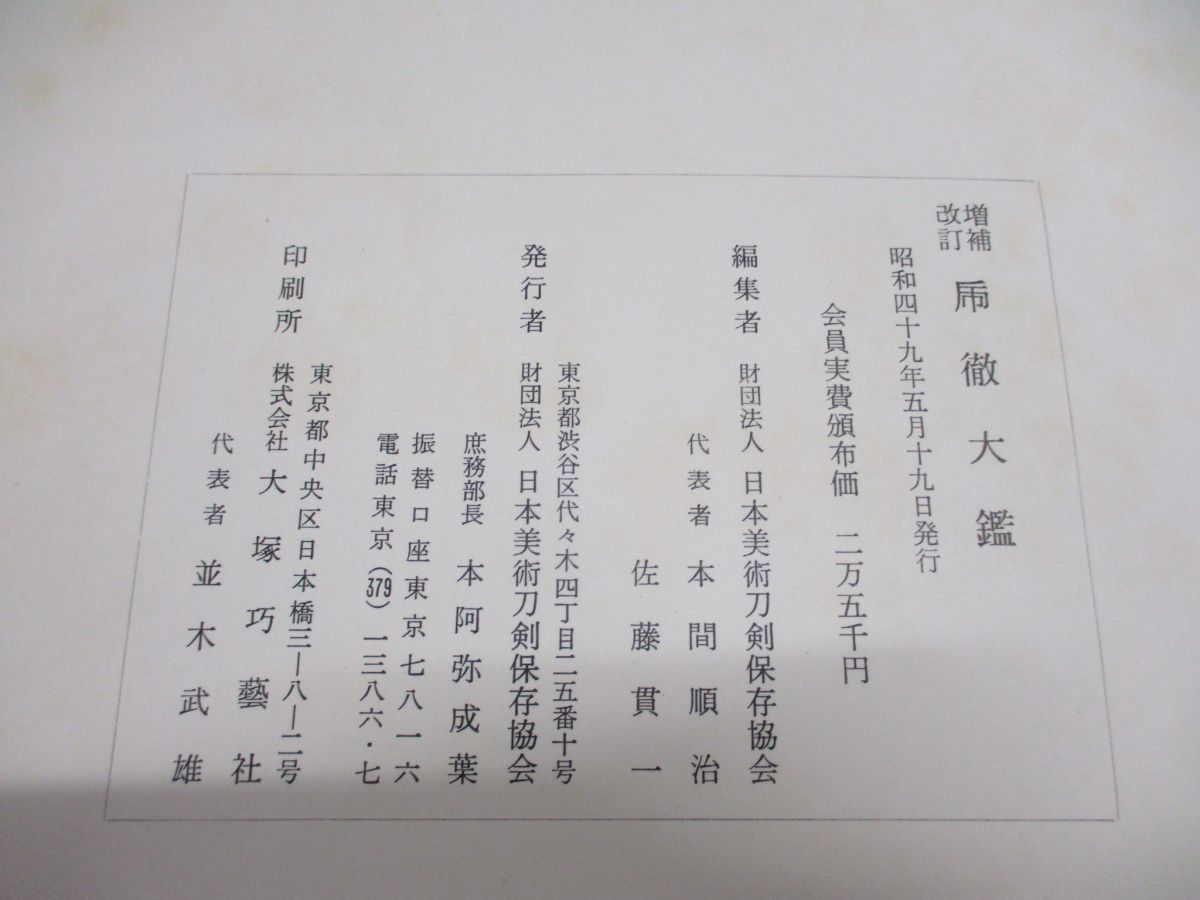 増補
改訂
乕徹大鑑
昭和四十九年五月十九日発行
会員実費頒布価 二万五千円
編集者 財団法人 日本美術刀剣保存協会
代表者 本間順治
佐藤貫一
東京都渋谷区代々木四丁目二五番十号
発行者 財団法人 日本美術刀剣保存協会
庶務部長 本阿弥成葉
振替口座東京七八一六
電話東京(379)一三八六・七
東京都中央区日本橋三―八―二号
印刷所 株式会社 大塚巧藝社
代表者 並木武雄